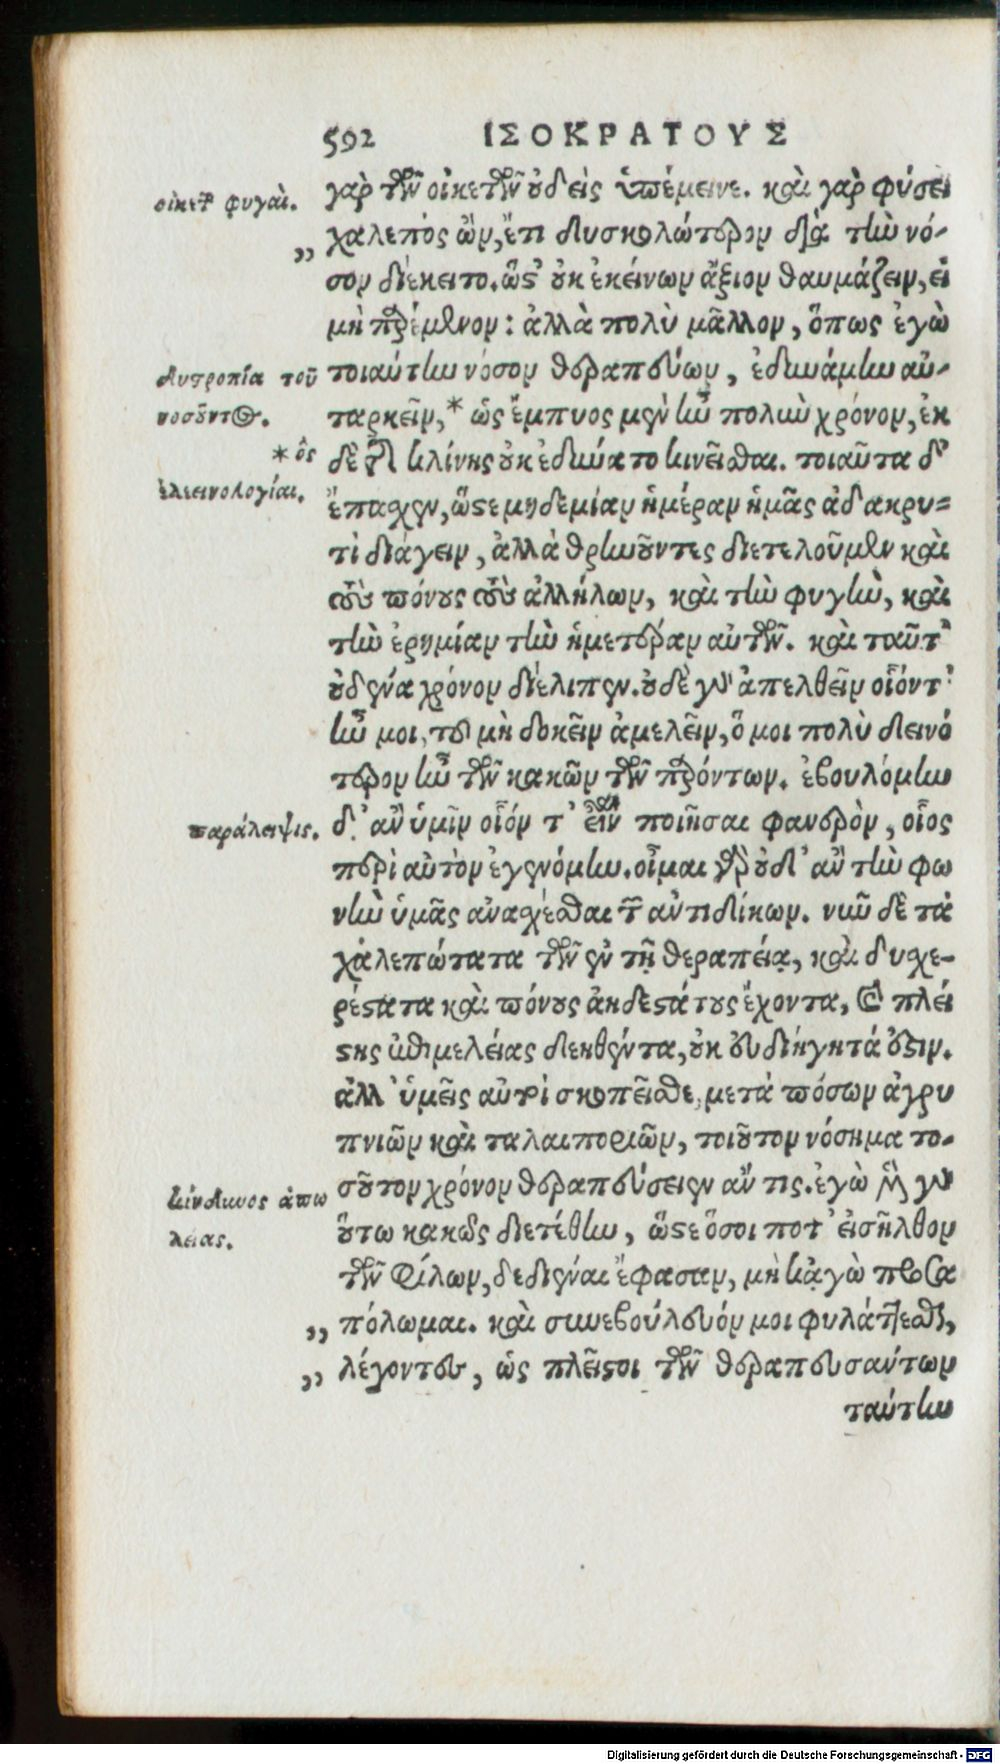 592 ΙΣΟΚΡΑΤΟΥΣ
οἰκετῶν φυγαί.
γὰρ τῶν οἰκετῶν οὐδεὶς ὑπέμεινε. καὶ γὰρ φύσει
„ χαλεπὸς ὢν, ἔτι δυσκολώτερον διὰ τὴν νό-
σον διέκειτο. ὥστ’ οὐκ ἐκείνων ἄξιον θαυμάζειν, εἰ
μὴ παρέμενον: ἀλλὰ πολὺ μᾶλλον, ὅπως ἐγὼ
δυστροπία τοῦ
νοσοῦντος.
τοιαύτην νόσον θεραπεύων, ἐδυνάμην αὐ-
ταρκεῖν, * ὡς ἔμπυος μὲν ἦν πολὺν χρόνον, ἐκ
* ὃς
δὲ τῆς κλίνης οὐκ ἐδύνατο κινεῖσθαι. τοιαῦτα δ’
ἐλεεινολογίαι.
ἔπασχεν, ὥστε μηδεμίαν ἡμέραν ἡμᾶς ἀδακρυ-
τὶ διάγειν, ἀλλὰ θρηνοῦντες διετελοῦμεν καὶ
τοὺς πόνους τοὺς ἀλλήλων, καὶ τὴν φυγὴν, καὶ
τὴν ἐρημίαν τὴν ἡμετέραν αὐτῶν. καὶ ταῦτ’
οὐδένα χρόνον διέλιπεν. οὐδὲ γὰρ ἀπελθεῖν οἷόντ’
ἦν μοι, του μὴ δοκεῖν ἀμελεῖν, ὅ μοι πολὺ δεινό
τερον ἦν τῶν κακῶν τῶν παρόντων. ἐβουλόμην
παράλειψις.
δ’ ἂν ὑμῖν οἷόν τ’ εἶναι ποιῆσαι φανερὸν, οἷος
περὶ αὐτὸν ἐγενόμην. οἶμαι γὰρ οὐδ’ ἂν τὴν φω
νὴν ὑμᾶς ἀνασχέσθαι τῶν ἀντιδίκων. νῦν δὲ τὰ
χαλεπώτατα τῶν ἐν τῇ θεραπείᾳ, καὶ δυχε-
ρέστατα καὶ πόνους ἀηδεστάτους ἔχοντα, καὶ πλεί
στης ἐπιμελείας δεηθέντα, οὐκ εὐδιήγητά ἐστιν.
ἀλλ’ ὑμεῖς αὐτοὶ σκοπεῖσθε, μετὰ πόσων ἀγρυ
πνιῶν καὶ ταλαιποριῶν, τοιοῦτον νόσημα το-
σοῦτον χρόνον θεραπεύσειεν ἄν τις. ἐγὼ μὲν γὰρ
κίνδυνος ἀπω
λείας.
οὕτω κακῶς διετέθην, ὥστε ὅσοι ποτ’ εἰσῆλθον
τῶν φίλων, δεδιέναι ἔφασαν, μὴ κᾀγὼ προσα
„ πόλωμαι. καὶ συνεβούλευόν μοι φυλάττεσθαι,
„ λέγοντες, ὡς πλεῖστοι τῶν θεραπευσαντων
ταύτην
Digitalisierung gefördert durch die Deutsche Forschungsgemeinschaft - DFG